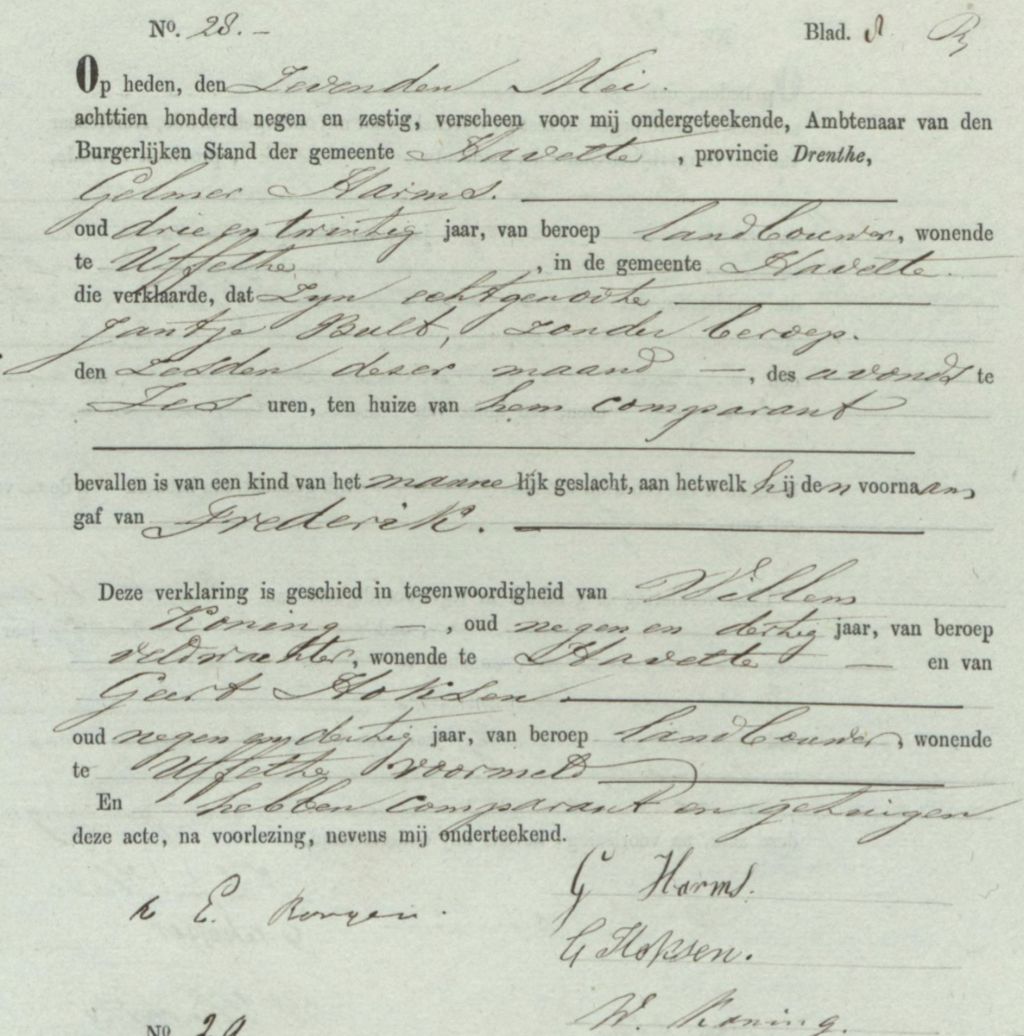 No. 28. - Blad. 8
Op heden, den Zevenden Mei.
achttien honderd negen en zestig, verscheen voor mij ondergeteekende, Ambtenaar van den
Burgerlijken Stand der gemeente Havelte, provincie Drenthe,
Gelmer Harms.
oud drie en twintig jaar, van beroep landbouwer, wonende
te Uffelthe, in de gemeente Havelte.
die verklaarde, dat Zyn echtgenoote
Jantje Bult, zonder beroep.
den zesden dezer maand —, des avonds te
Zes uren, ten huize van hem comparant
bevallen is van een kind van het mannelijk geslacht, aan hetwelk hij den voornaam
gaf van Frederik.
Deze verklaring is geschied in tegenwoordigheid van Willem
Koning —, oud negen en dertig jaar, van beroep
veldwachter, wonende te Havelte — en van
Geert Hoksen.
oud negen en dertig jaar, van beroep landbouwer, wonende
te Uffelthe voormeld
En hebben comparant en getuigen
deze acte, na voorlezing, nevens mij onderteekend.
G Harms.
E.
G Hoksen.
W. Koning.
No 29